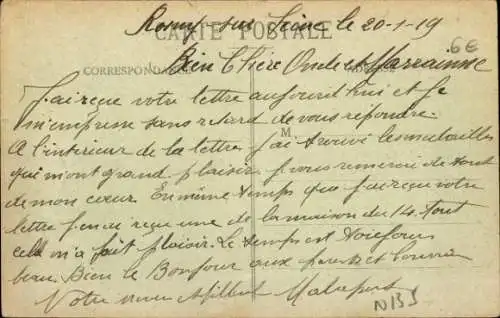 Rosny sur Seine le 20-1-19
CARTE POSTALE
6€
Bien Chère Oncle et Marrainne
CORRESPONDANCE
J'ai reçue votre lettre aujourd'hui et je
m'empresse sans retard de vous répondre
M
A l'intérieur de la lettre j'ai trouvé les
qui m'ont grand plaisir je vous remercie de tout
de mon coeur. En même temps que j'ai reçue votre
lettre j'en ai reçue une de la maison du 14. Tout
cela m'a fait plaisir. Le temps est toujours
beau. Bien le Bonjour aux
Votre
NBJ